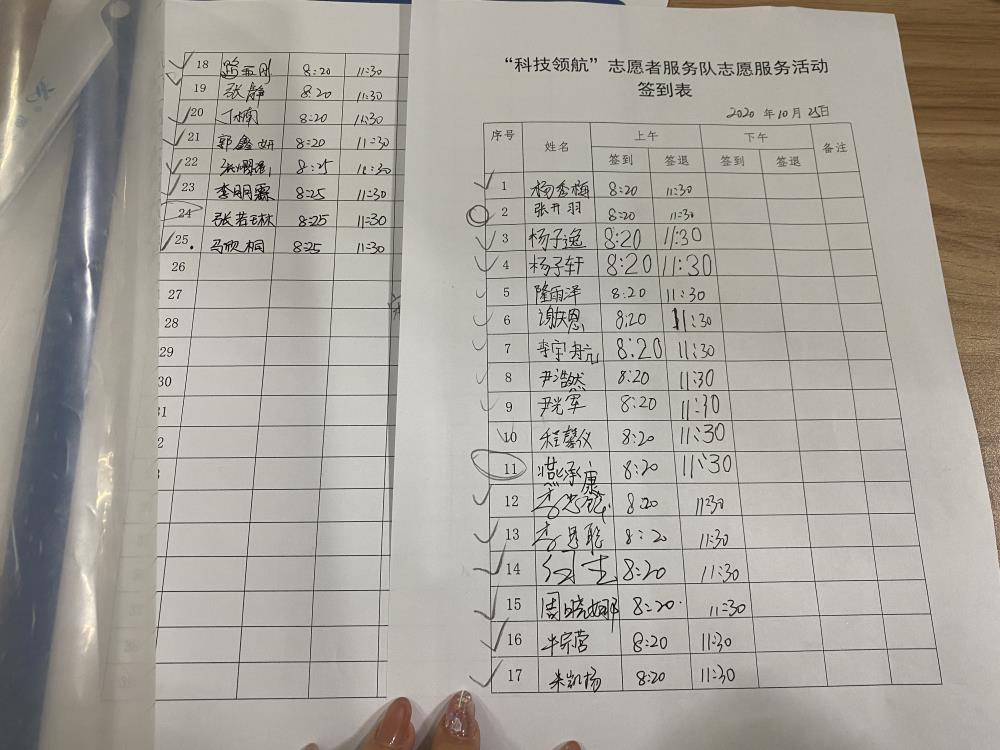 “科技领航”志愿者服务队志愿服务活动
签到表
2020 年 10 月 25日
序号 姓名 上午 下午 备注
签到 签退 签到 签退
1 杨秀梅 8:20 11:30
2 张开羽 8:20 11:30
3 杨子逸 8:20 11:30
4 杨子轩 8:20 11:30
5 隆雨泽 8:20 11:30
6 谢天恩 8:20 11:30
7 李宇航 8:20 11:30
8 尹浩然 8:20 11:30
9 尹光军 8:20 11:30
10 程馨仪 8:20 11:30
11 燕承康 8:20 11:30
12 李 8:20 11:30
13 李昱聪 8:20 11:30
14 8:20 11:30
15 周晓娜 8:20 11:30
16 牛宗营 8:20 11:30
17 朱凯杨 8:20 11:30
18 8:20 11:30
19 张静 8:20 11:30
20 丁楠 8:20 11:30
21 郭鑫妍 8:20 11:30
22 张 8:25 11:30
23 李明霖 8:25 11:30
24 张若琳 8:25 11:30
25 马欣桐 8:25 11:30
26
27
28
29
30